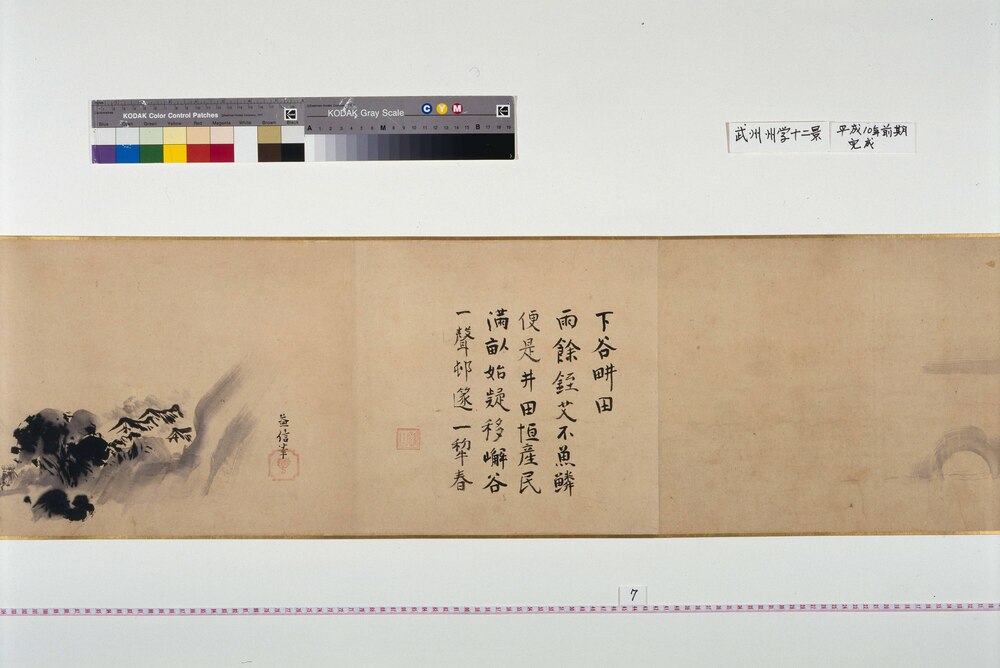 KODAK Color Control Patches
Blue
Cyan
Green
Yellow
Red
Magenta
White
Brown
Black
Kodak
KODAK Gray Scale
C Y M
Kodak
A 1 2 3 4 5 6 M 8 9 10 11 12 13 14 15 B 17 18 19
武州州学十二景
平成10年前期
完成
下谷畊田
雨餘銍艾不魚鱗
便是井田恒産民
満畝始疑移嶰谷
一聲邨邃一犂春
益信筆
7